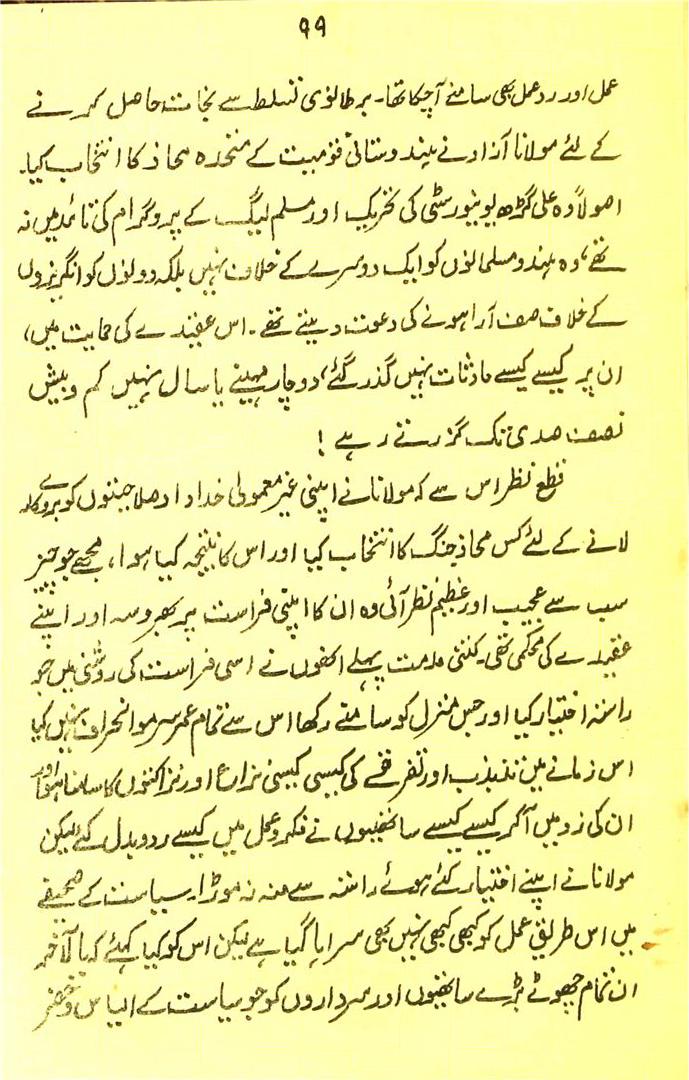 ۹۹
عمل اور ردعمل بھی سامنے آچکا تھا۔ برطانوی تسلط سے نجات حاصل کرنے
کے لئے مولانا آزاد نے ہندوستانی قومیت کے متحدہ محاذ کا انتخاب کیا۔
اصولاً وہ علی گڑھ یونیورسٹی کی تحریک اور مسلم لیگ کے پروگرام کی تائید میں نہ
تھے، وہ ہندو مسلمانوں کو ایک دوسرے کے خلاف نہیں بلکہ دونوں کو انگریزوں
کے خلاف صف آرا ہونے کی دعوت دیتے تھے۔ اس عقیدے کی حمایت میں،
ان پر کیسے کیسے حادثات نہیں گذر گئے، دوچار مہینے یا سال نہیں کم و بیش
نصف صدی تک گزرتے رہے !
قطع نظر اس سے کہ مولانا نے اپنی غیر معمولی خداداد صلاحیتوں کو بروئے کار
لانے کے لئے کس محاذ جنگ کا انتخاب کیا اور اس کا نتیجہ کیا ہوا، مجھے جو چیز
سب سے عجیب اور عظیم نظر آئی وہ ان کا اپنی فراست پر بھروسہ اور اپنے
عقیدے کی محکمی تھی۔ کتنی مدت پہلے انھوں نے اسی فراست کی روشنی میں جو
راستہ اختیار کیا اور جس منزل کو سامنے رکھا اس سے تمام عمر سرمو انحراف نہیں کیا
اس زمانے میں تذبذب اور تفرقے کی کیسی کیسی نزاع اور نزاکتوں کا سامنا ہوا اور
ان کی زد میں آکر کیسے کیسے ساتھیوں نے فکر و عمل میں کیسے ردوبدل کئے لیکن
مولانا نے اپنے اختیار کئے ہوئے راستہ سے منہ نہ موڑا۔ سیاست کے صحیفے
میں اس طریق عمل کو کبھی کبھی نہیں بھی سراہا گیا ہے لیکن اس کو کیا کہئے کہ بالآخر
ان تمام چھوٹے بڑے ساتھیوں اور سرداروں کو جو سیاست کے الیاس و خضر